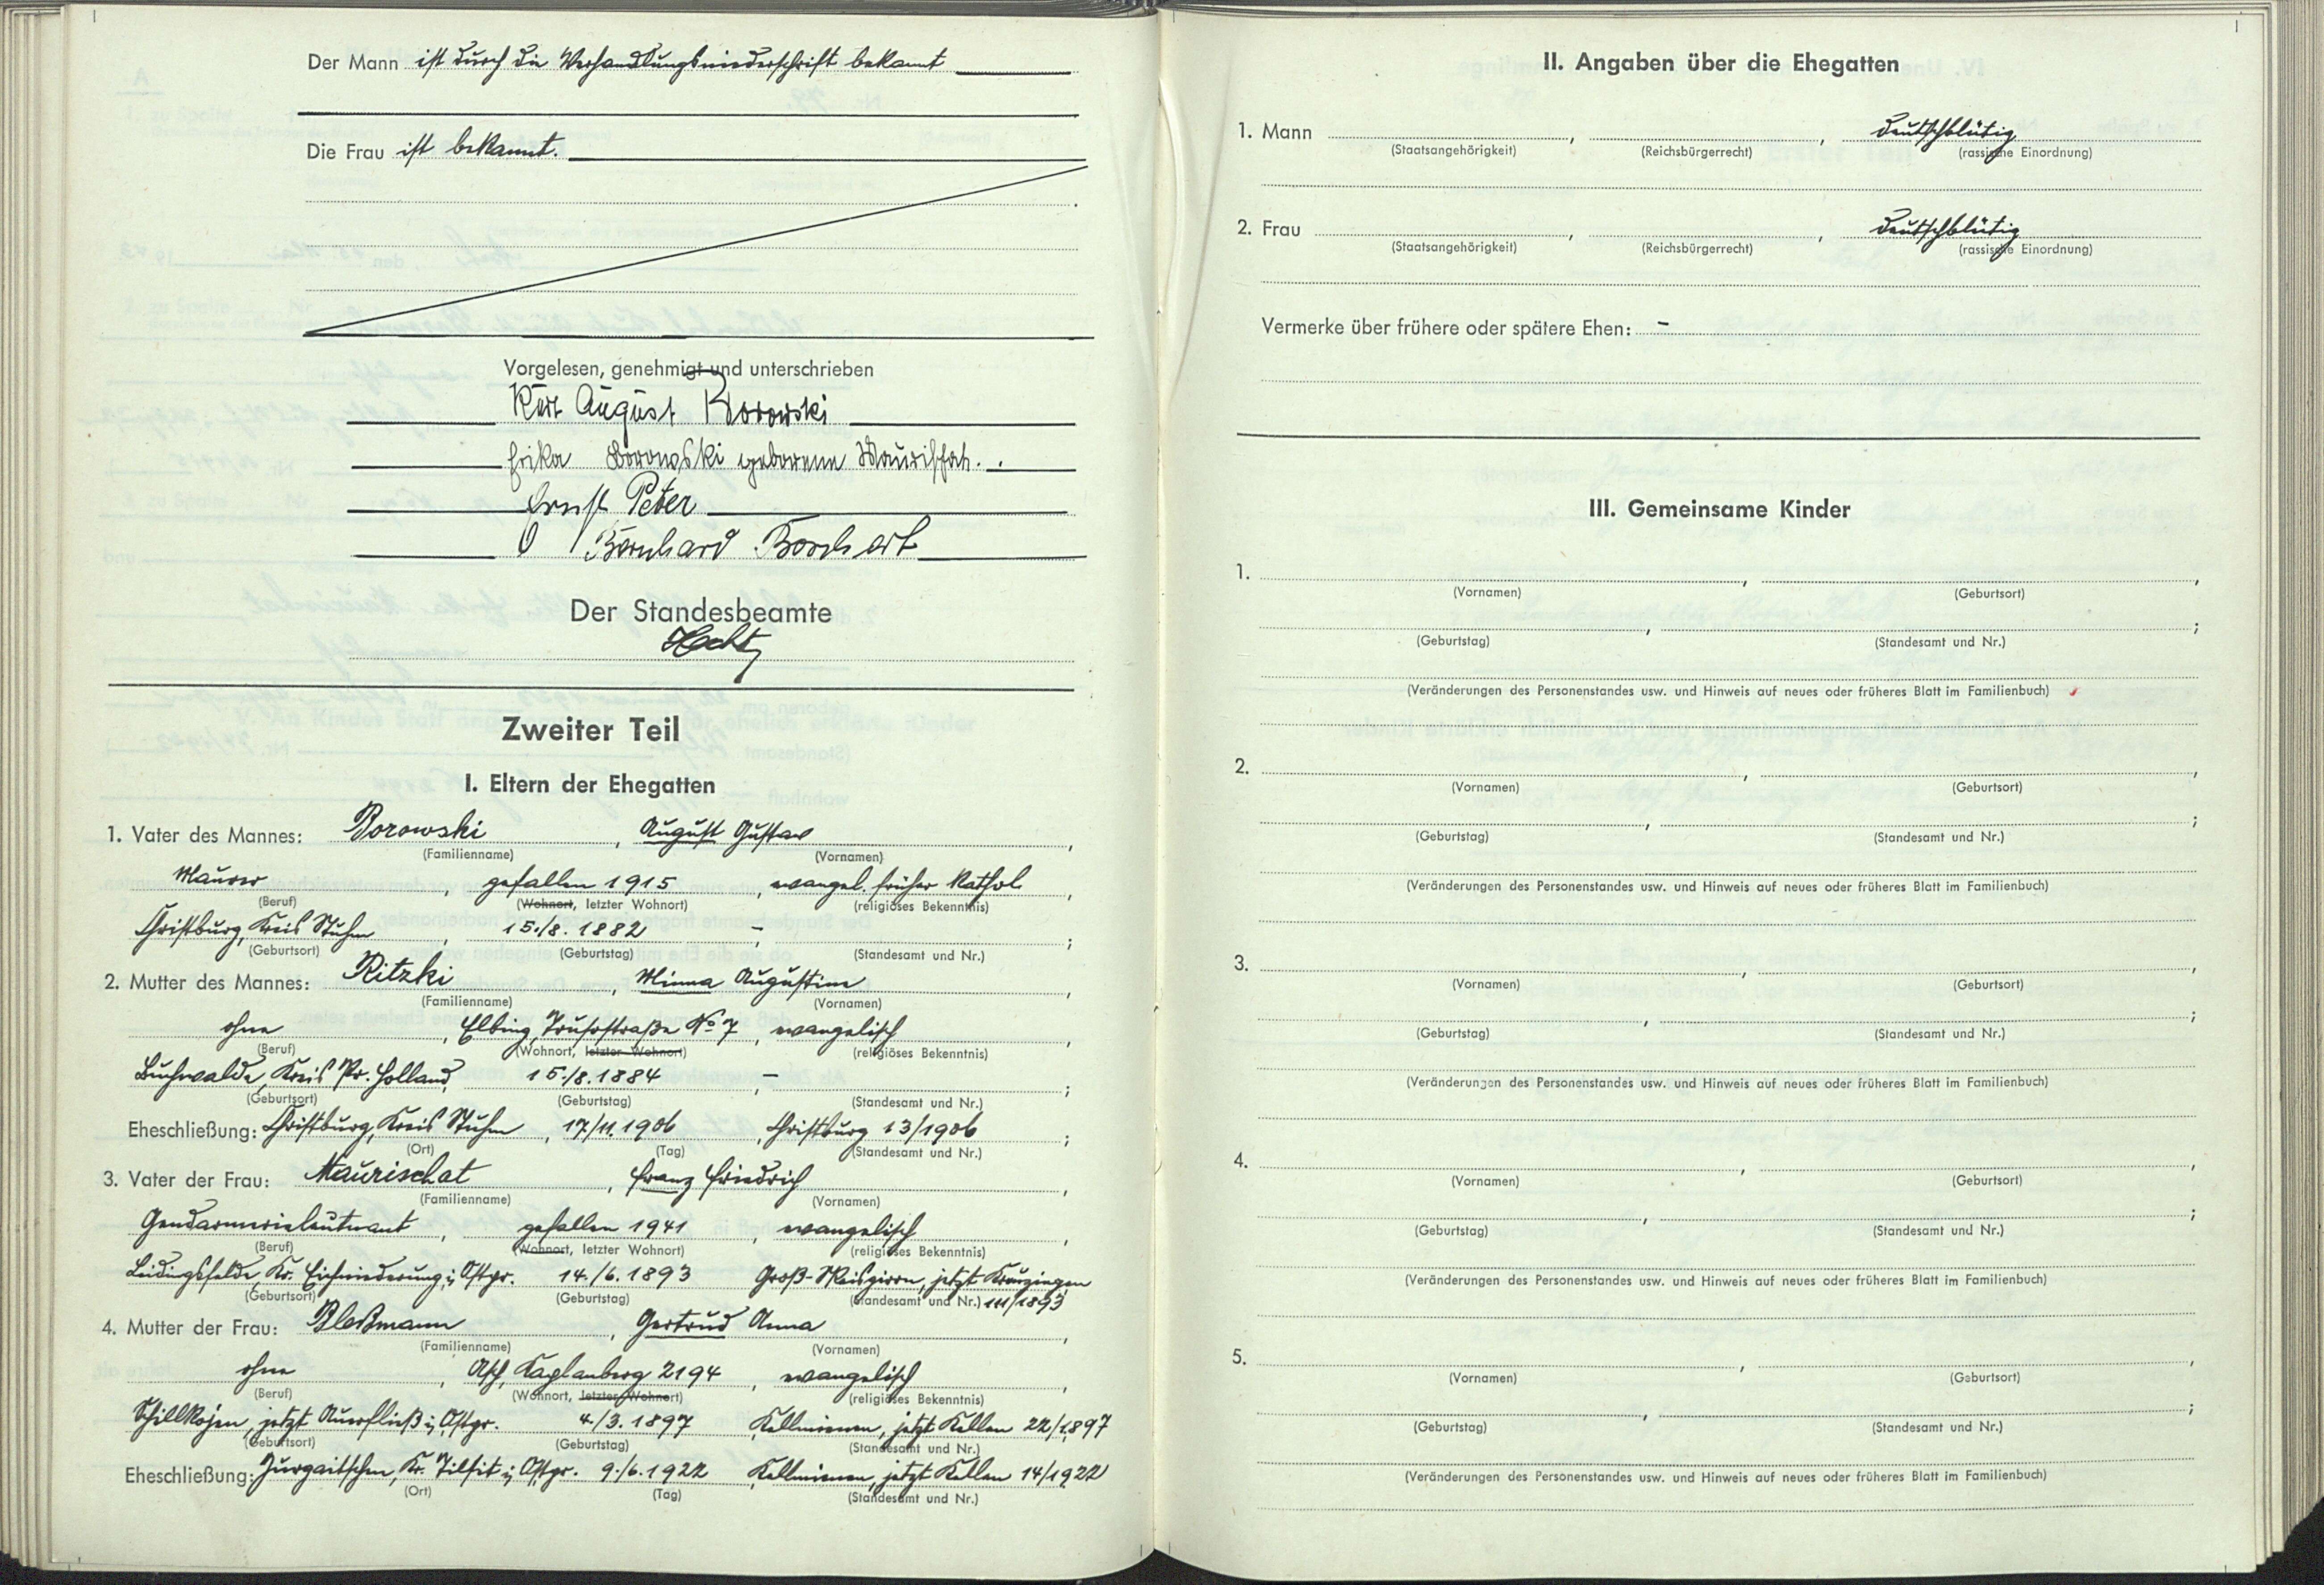 Der Mann ist durch die Verhandlungsniederschrift bekannt
Die Frau ist bekannt.
Vorgelesen, genehmigt und unterschrieben
Kurt August Borowski
Erika Borowski geborene Maurischat.
Ernst Peter
Bernhard Borchert
Der Standesbeamte
Zweiter Teil
I. Eltern der Ehegatten
1. Vater des Mannes: Borowski, August Gustav,
(Familienname) (Vornamen)
Maurer, gefallen 1915, evangel. früher Kathol.,
(Beruf) (Wohnort, letzter Wohnort) (religiöses Bekenntnis)
Christburg, Kreis Stuhm, 15./8. 1882, -;
(Geburtsort) (Geburtstag) (Standesamt und Nr.)
2. Mutter des Mannes: Ritzki, Minna Augustine,
(Familienname) (Vornamen)
ohne, Elbing, Trusostraße No 7, evangelisch,
(Beruf) (Wohnort, letzter Wohnort) (religiöses Bekenntnis)
Buchwalde, Kreis Pr. Holland, 15./8. 1884, -;
(Geburtsort) (Geburtstag) (Standesamt und Nr.)
Eheschließung: Christburg, Kreis Stuhm, 17/11. 1906, Christburg 13/1906;
(Ort) (Tag) (Standesamt und Nr.)
3. Vater der Frau: Maurischat, Franz Friedrich,
(Familienname) (Vornamen)
Gendarmerieleutnant, gefallen 1941, evangelisch,
(Beruf) (Wohnort, letzter Wohnort) (religiöses Bekenntnis)
Kr. Elchniederung i. Ostpr. 14./6. 1893 Groß-Skaisgirren, jetzt Kreuzingen
(Geburtsort) (Geburtstag) (Standesamt und Nr.) 111/1893
4. Mutter der Frau: Bleßmann, Gertrud Anna,
(Familienname) (Vornamen)
ohne, Asch, Kaplanberg 2194, evangelisch,
(Beruf) (Wohnort, letzter Wohnort) (religiöses Bekenntnis)
Schillkojen, jetzt Auerfließ i. Ostpr. 4/3. 1897 Kellmienen, jetzt Kellen 22/1897
(Geburtsort) (Geburtstag) (Standesamt und Nr.)
Eheschließung: Jurgaitschen, Kr. Tilsit i. Ostpr. 9./6. 1922 Kellmienen, jetzt Kellen 14/1922
(Ort) (Tag) (Standesamt und Nr.)
II. Angaben über die Ehegatten
1. Mann , , deutschblütig
(Staatsangehörigkeit) (Reichsbürgerrecht) (rassische Einordnung)
2. Frau , , deutschblütig
(Staatsangehörigkeit) (Reichsbürgerrecht) (rassische Einordnung)
Vermerke über frühere oder spätere Ehen: -
III. Gemeinsame Kinder
1. , ,
(Vornamen) (Geburtsort)
, ;
(Geburtstag) (Standesamt und Nr.)
(Veränderungen des Personenstandes usw. und Hinweis auf neues oder früheres Blatt im Familienbuch)
2. , ,
(Vornamen) (Geburtsort)
, ;
(Geburtstag) (Standesamt und Nr.)
(Veränderungen des Personenstandes usw. und Hinweis auf neues oder früheres Blatt im Familienbuch)
3. , ,
(Vornamen) (Geburtsort)
, ;
(Geburtstag) (Standesamt und Nr.)
(Veränderungen des Personenstandes usw. und Hinweis auf neues oder früheres Blatt im Familienbuch)
4. , ,
(Vornamen) (Geburtsort)
, ;
(Geburtstag) (Standesamt und Nr.)
(Veränderungen des Personenstandes usw. und Hinweis auf neues oder früheres Blatt im Familienbuch)
5. , ,
(Vornamen) (Geburtsort)
, ;
(Geburtstag) (Standesamt und Nr.)
(Veränderungen des Personenstandes usw. und Hinweis auf neues oder früheres Blatt im Familienbuch)